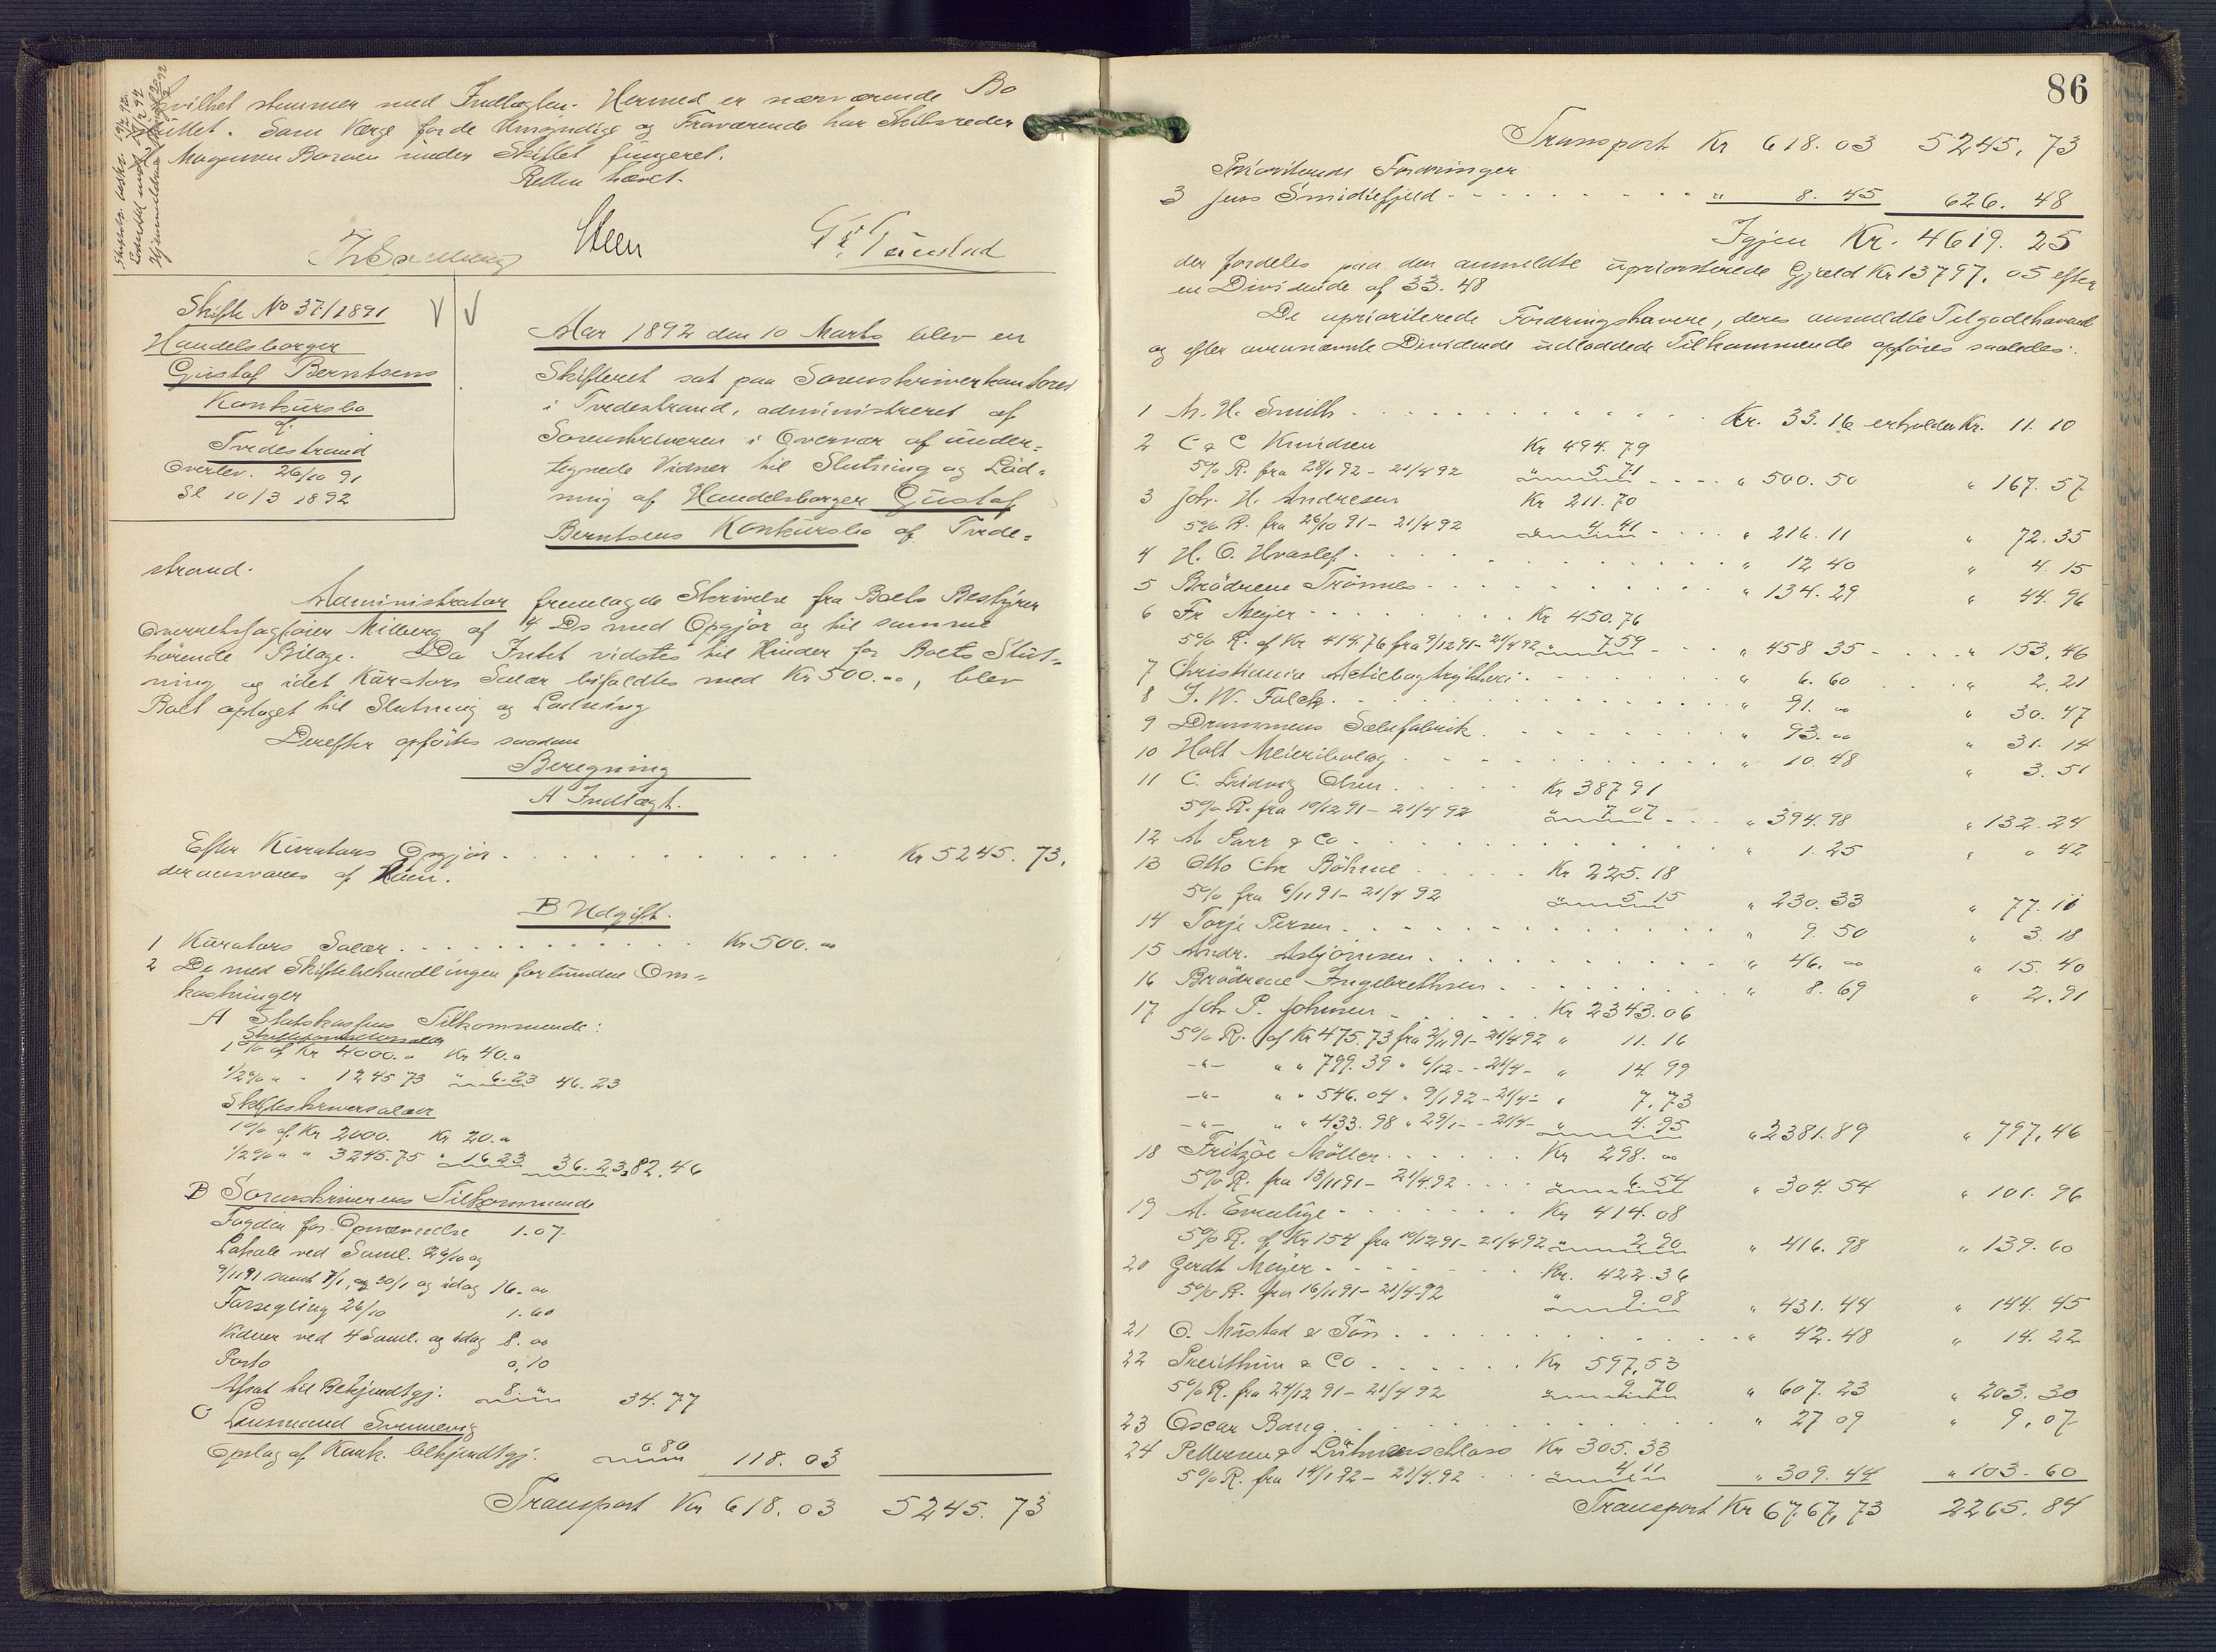 hvilket stemmer med Indtægten. Hermed er nærværende Bo
sluttet. Som Værge for de Umyndige og Fraværende har Skibsreder
Magnus Boroen under Skiftet fungeret.
Retten hævet.
Steen
Skifte No 37/1891
Handelsborger
Gustaf Berntsens
Konkursbo
af
Tvedestrand
Overlev. 26/10 91
Sl 10/3 1892
Aar 1892 den 10 Marts blev en
Skifteret sat paa Sorenskriverkontoret
i Tvedestrand, administreret af
Sorenskriveren i Overvær af under-
tegnede Vidner til Slutning og Lød-
ning af Handelsborger Gustaf
Berntsens Konkursbo af Tvede-
strand.
Administrator fremlagde Skrivelse fra Boets Bestyrer
Overretssagfører Milberg af 4 Ds med Opgjør og til samme
hørende Bilage. Da Intet vidstes til Hinder for Boets Slut-
ning og idet Kurators Salær bifaldtes med Kr 500.00, blev
Boet optaget til Slutning og Lodning
Derefter opførtes saadan
Beregning
A Indtægt.
Efter Kurators Opgjør . . . . . . Kr 5245. 73.
der ansvares af Ham.
B Udgift.
1 Kurators Salær . . . . . . Kr 500. 00
2 De med Skiftebehandlingen forbundne Om-
kostninger
A Statskassens Tilkommende:
1 % af Kr 4000. " Kr 40. "
1/2% " " 1245 73 " 6.23 46.23
Skifteskriversalær
1 % af Kr 2000. Kr 20. "
1/2% " " 3245.75 " 16 23 36. 23 82. 46
B Sorenskriverens Tilkommende
Fogden for Opnævnelse 1.07
Lokale ved Saml. 26/10 og
9/11 91 samt 7/1, og 30/1 og idag 16. 00
Forsegling 26/10 1.60
Vidner ved 4 Saml. og idag 8. 00
Porto 0,10
Afsat til Bekjendtgj. 8. " 34. 77
C Lensmand
Opslag af Konk. bekjendtgj. " 0 80 118. 03
Transport Kr 618. 03 5245. 73
86
Transport Kr 618. 03 5245, 73
Prioriterede Fordringer
3 Jens Smidiefjeld - - - " 8. 45 626. 48
Igjen Kr. 4619. 25
der fordeles paa den anmeldte upriorterede Gjæld Kr 13797. 05 efter
en Dividende af 33. 48
De uprioriterede Fordringshavere, deres anmeldte Tilgodehavende
og efter ovennævnte Dividende udloddede Tilkommende opføres saaledes:
1 M. H. Smith . . . . Kr. 33. 16 erholder Kr. 11. 10
2 C & C Knudsen Kr 494. 79
5% R. fra 28/1 92 - 21/4 92 " 5 71 - - - " 500. 50 " 167. 57
3 Joh. H. Andresen Kr 211. 70
5% R. fra 26/10 91 - 21/4 92 " 4 41 - - - " 216. 11 " 72. 35
4 H. O. Hvaslef . . . " 12 40 " 4. 15
5 Brödrene Trönnes . . . " 134. 29 " 44. 96
6 Fr Meyer - - - Kr 450. 76
5% R. af Kr 414.76 fra 9/12 91 - 21/4 92 " 7 59 - - " 458 35 - . . . " 153. 46
7 Christiania . . . " 6. 60 . . . " 2. 21
8 J. W. Falck . . . " 91. 00 " 30. 47
9 Drammens Sæbefabrik . . . " 93. 00 " 31. 14
10 Holt Meieribolag . . . " 10. 48 " 3. 51
11 C. Ludvig Olsen . . . Kr 387 91
5% R. fra 10/12 91 - 21/4 92 " 7 07 - - - " 394. 98 " 132. 24
12 A Parr & Co . . . " 1. 25 " 0 42
13 Otto Chr Böhme . . . Kr 225. 18
5% fra 6/11 91 - 21/4 92 " 5 15 " 230. 33 " 77. 11
14 Torje Persen . . . " 9. 50 " 3. 18
15 Andr. Asbjörnsen . . . " 46. 00 " 15. 40
16 Brödrene Ingebrethsen . . . " 8. 69 " 2. 91
17 Joh P. Johnsen - . . . Kr 2343. 06
5% R. af Kr 475. 73 fra 2/11 91 - 21/4 92 " 11. 16
-"- " " 799. 39 " 6/12 - - 21/4 - " 14 99
-"- " " 546. 04 " 9/1 92 - 21/4 - " 7. 73
-"- " " 433. 98 " 29/1 - - 21/4 - " 4. 95 " 2381. 89 " 797, 46
18 Fritzöe Möller . . . Kr 298. 00
5% R. fra 13/11 91 - 21/4 92 . . . " 6. 54 " 304. 54 " 101. 96
19 A. Evenlige - . . . Kr 414. 08
5% R. af Kr 154 fra 10/12 91 - 21/4 92 " 2 90 " 416. 98 " 139. 60
20 Gerdt Meyer - . . . Kr. 422. 36
5% R. fra 16/11 91 - 21/4 92 " 9. 08 " 431. 44 " 144. 45
21 O. Mustad & Sön . . . " 42. 48 " 14. 22
22 Preusthun & Co . . . Kr 597, 53
5% R. fra 24/12 91 - 21/4 92 " 9 70 " 607. 23 " 203. 30
23 Oscar Bang . . . " 27 09 " 9, 07
24 Pettersen & Lührenschloss Kr 305. 33
5% R. fra 14/1 92 - 21/4 92 . . " 4 11 " 309. 44 " 103. 60
Transport Kr 6767, 73 2265. 84